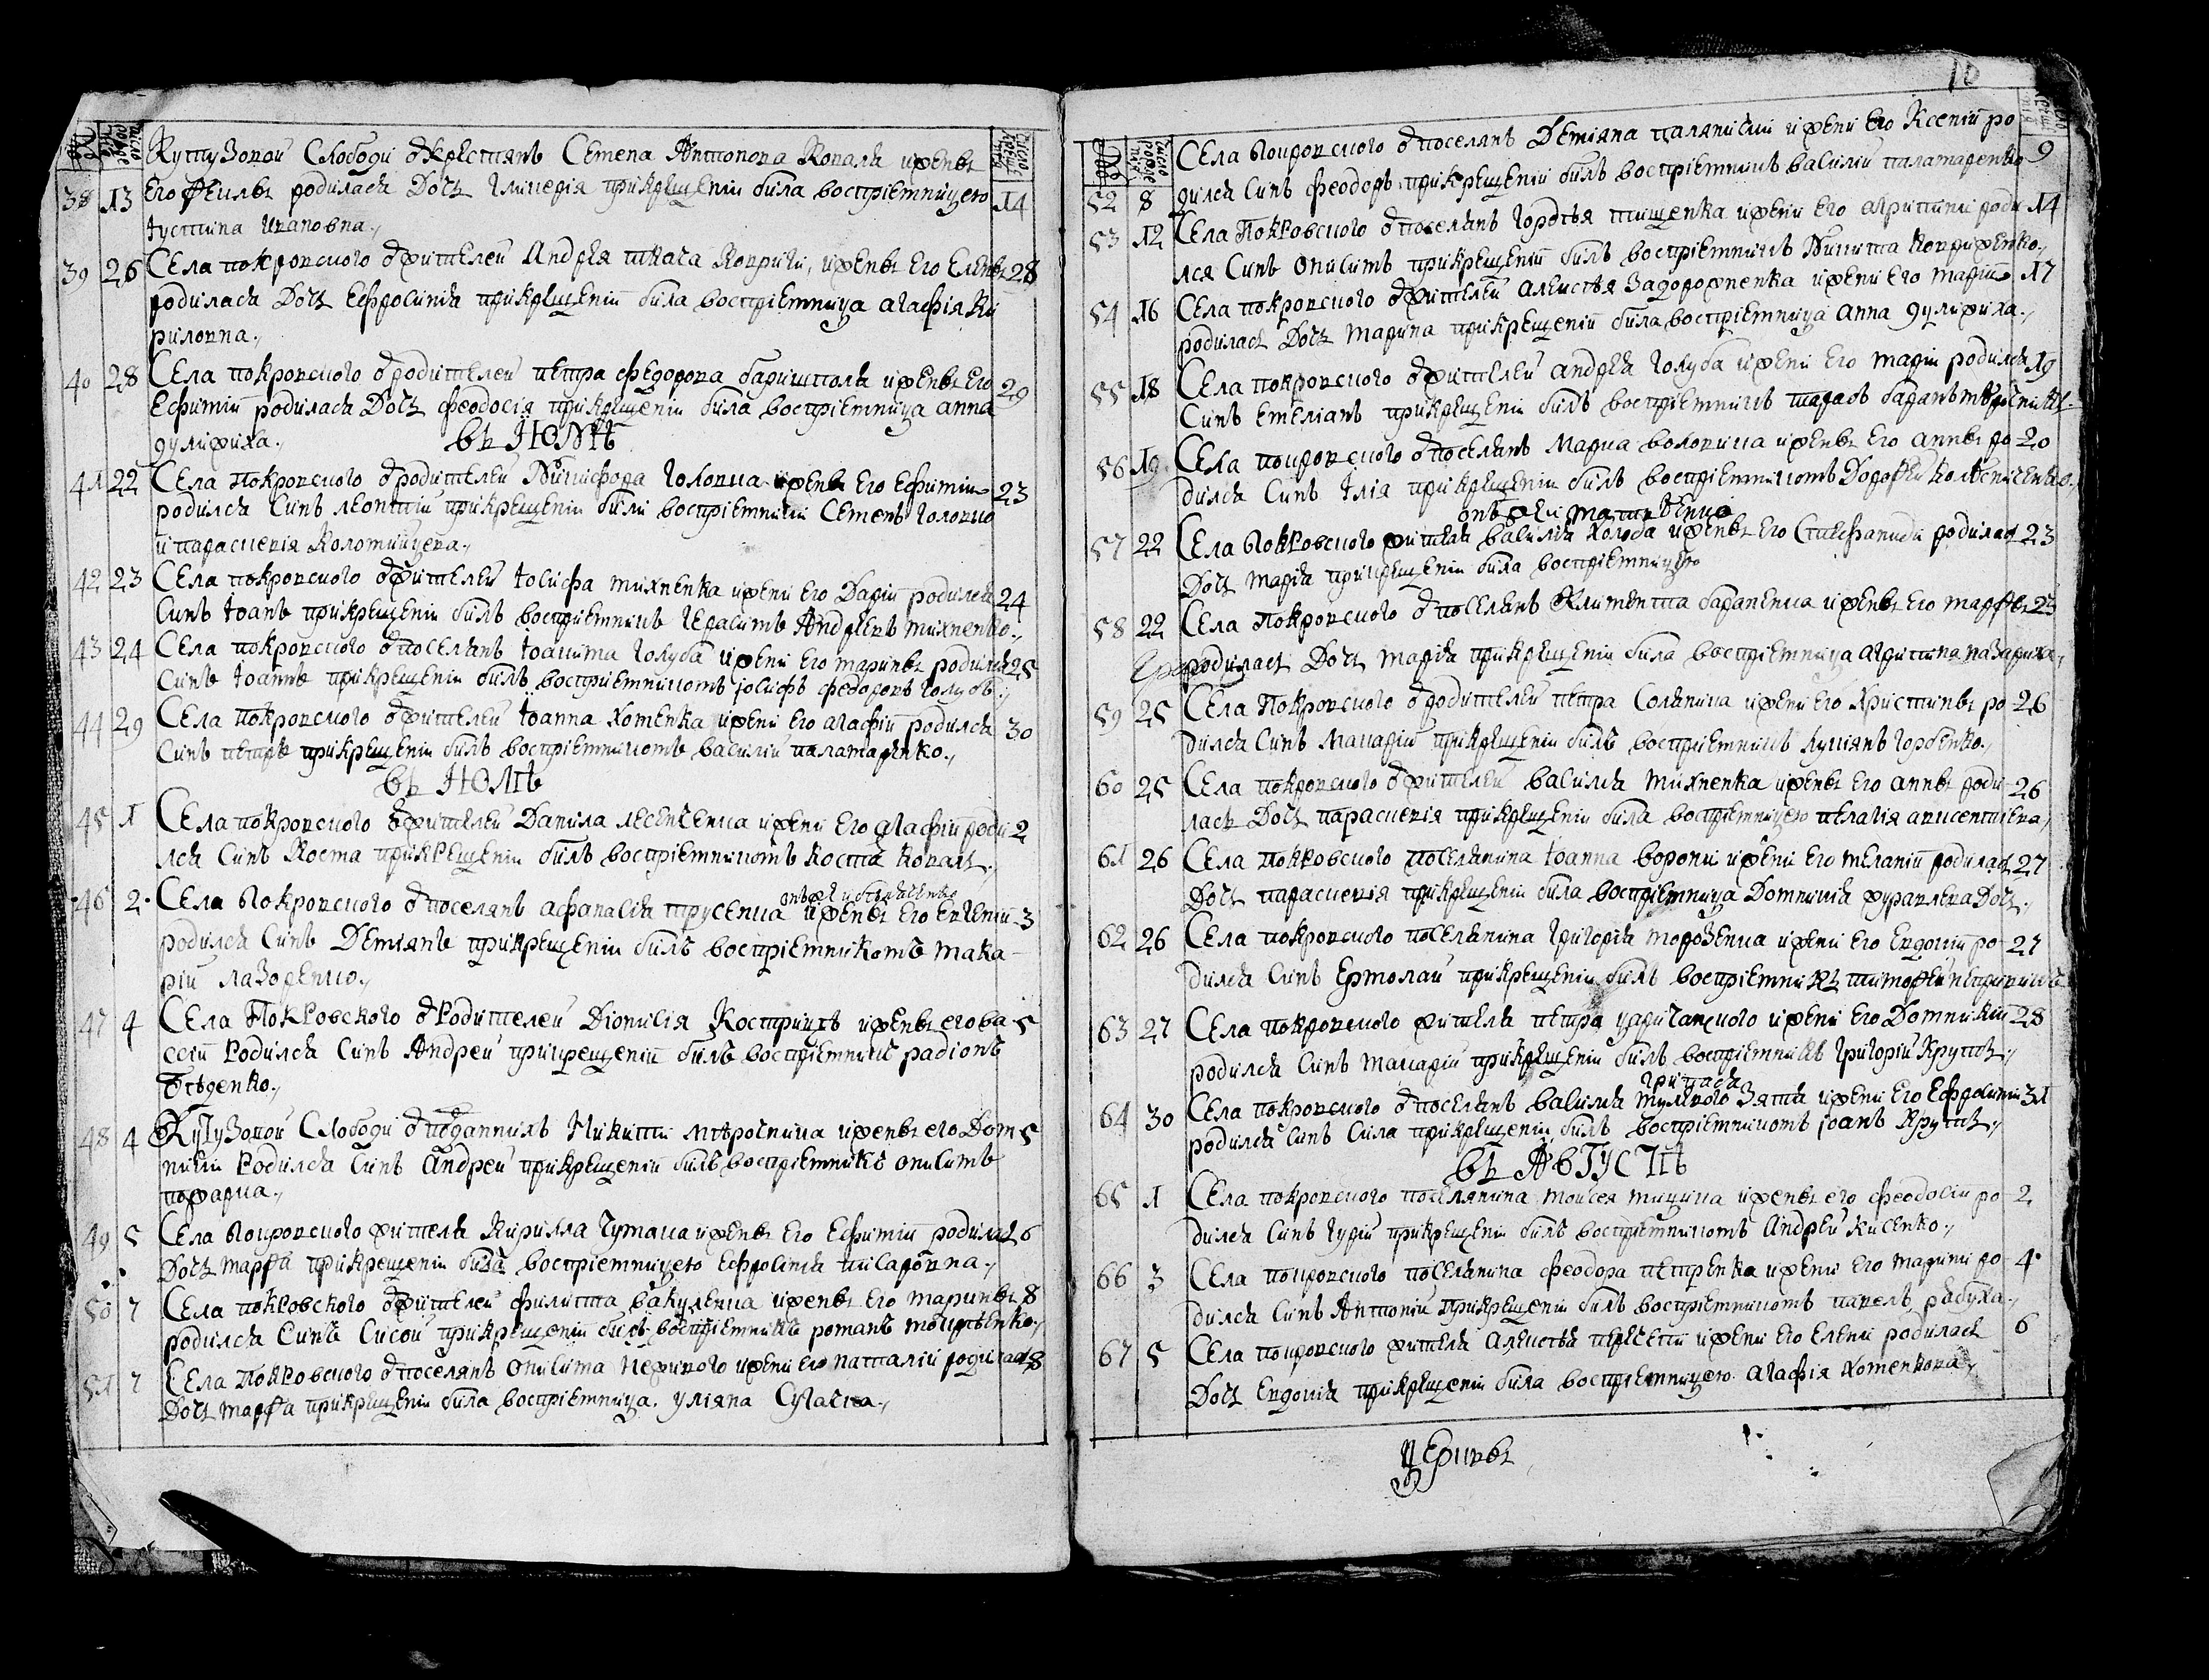 Кутузовой Слободи от крестянъ Семена Антонова Коваля и жены
38 13 Его Феклы родилася Дочь Гликерія при крещеніи била воспріемницею 14
Іустина Ивановна.
39 26 Села покровского от жителей Андрея ткача Ковриги, и жены Его Елены 28
родилася Дочь Ефросинія при крещеніи била воспріемница агафія Ки
риловна.
40 28 Села покровского от родителей петра федорова баришполя и жены Его 29
Ефиміи родилася Дочь феодосія при крещеніи била воспріемница анна
дулжиха.
въ ІЮНѢ
41 22 Села покровского от родителей Никифора Головка и жены Его Ефиміи 23
родился Синъ леонтій при крещеніи били воспріемники Семенъ Головко
и параскевія Коломийцева.
42 23 Села покровского от жителей Іосифа михненка и жени Его Даріи родился 24
Синъ Іоанъ при крещеніи билъ воспріемникъ Герасимъ Андреевъ михненко.
43 24 Села покровского от поселянъ Іоакима Голуба и жени Его марины родился 25
Синъ Іоаннъ при крещеніи билъ воспріемникомъ іосифъ федоровъ Голубъ.
44 29 Села покровского от жителей Іоанна Хоменка и жени Его агафіи родился 30
Синъ петръ при крещеніи билъ воспріемникомъ василій паламаренко.
въ ІЮЛѢ
45 1 Села покровского от жителей Данила лесенченка и жени Его агафіи роди 2
лся Синъ Косма при крещеніи билъ воспріемникомъ косма коваль.
46 2 Села Покровского от поселянъ афанасія трусенка и жены Его Евгеніи 3
родился Синъ Деміянъ при крещеніи билъ воспріемникомъ мака
рій лазоренко.
47 4 Села Покровского от Родителей Діонисія Кострицѣ и жены его ва 5
ссіи Родился Синъ Андрей при крещеніи билъ воспріемникъ радіонъ
бѣденко.
48 4 Кутузовой Слободи от подданнихъ Никити мѣрочника и жены его Дом 5
никіи Родился Синъ Андрей при крещеніи билъ воспріемникъ онисимъ
пожарка.
49 5 Села Покровского жителя Кирилла Чумака и жены Его Ефиміи родилась 6
Дочь марфа при крещеніи била воспріемницею Ефросинія писаровна.
50 7 Села покровского от жителей филиппа вакуленка и жены Его марины 8
родился Синъ Сисой при крещеніи билъ воспріемникъ романъ моисѣенко.
51 7 Села Покровского от поселянъ Онисима Неживого и жени Его наталіи родилась 8
Дочь марфа при крещеніи била воспріемница. уліяна Сугачка.
10
Села покровского от поселянъ Деміяна паляници и жени Его Ксеніи ро
52 8 дился Синъ феодоръ при крещеніи билъ воспріемникъ василій паламаренко 9
53 12 Села Покровского от поселянъ Гордѣя тищенка и жени Его агрипини роди 14
лся Синъ Онисимъ при крещеніи билъ воспріемникъ Никита ковриженко.
54 16 Села покровского от жителей алексѣя Задорожненка и жени Его маріи 17
родилась Дочь марина при крещеніи била воспріемница анна дулжиха.
55 18 Села покровского от жителей андрея голуба и жени Его маріи родился 19
Синъ емеліанъ при крещеніи билъ воспріемникъ тарасъ
56 19 Села покровского от поселянъ Марка воловика и жены Его анны ро 20
дился Синъ Ілія при крещеніи билъ воспріемникомъ Дорофей колѣсниченко.
57 22 Села Покровского жителя василія Холода и жены Его Стефаниди родилась 23
Дочь марія при крещеніи била воспріемницею
58 22 Села Покровского от поселянъ Климента бараненка и жены Его марфы 23
родилась Дочь марія при крещеніи била воспріемница агрипина назариха.
59 25 Села Покровского от родителей петра Соляника и жени Его Христины ро 26
дился Синъ Макарій при крещеніи билъ воспріемникъ лукіянъ горбенко.
60 25 Села покровского от жителей василія михненка и жены Его анны роди 26
лась Дочь параскевія при крещеніи била воспріемницею пелагія авксентиева.
61 26 Села покровского поселянина Іоанна ворони и жени Его меланіи родилась 27
Дочь параскевія при крещеніи била воспріемница Домникія журавлева Дочь.
62 26 Села покровского поселянина григорія морозенка и жени Его Евдокіи ро 27
дился Синъ Ермолай при крещеніи билъ воспріемникъ тимофей
63 27 Села покровского жителя петра царичанского и жени Его Домникіи 28
родился Синъ макарій при крещеніи билъ воспріемникъ григорій Крутъ.
64 30 Села покровского от поселянъ василія Зятя и жени Его Ефросиніи 31
родился Синъ Сила при крещеніи билъ воспріемникомъ іоанъ Крутъ.
въ АВГУСТѢ
65 1 Села покровского поселянина моисея мицика и жены его феодосіи ро 2
дился Синъ гурій при крещеніи билъ воспріемникомъ андрей кисенко.
66 3 Села покровского поселянина феодора петренка и жени Его марини ро 4
дился Синъ Антоній при крещеніи билъ воспріемникомъ павелъ рябуха.
67 5 Села покровского жителя алексѣя и жени Его Елени родилась 6
Дочь Евдокія при крещеніи била воспріемницею. агафія Хоменкова.
Церквы